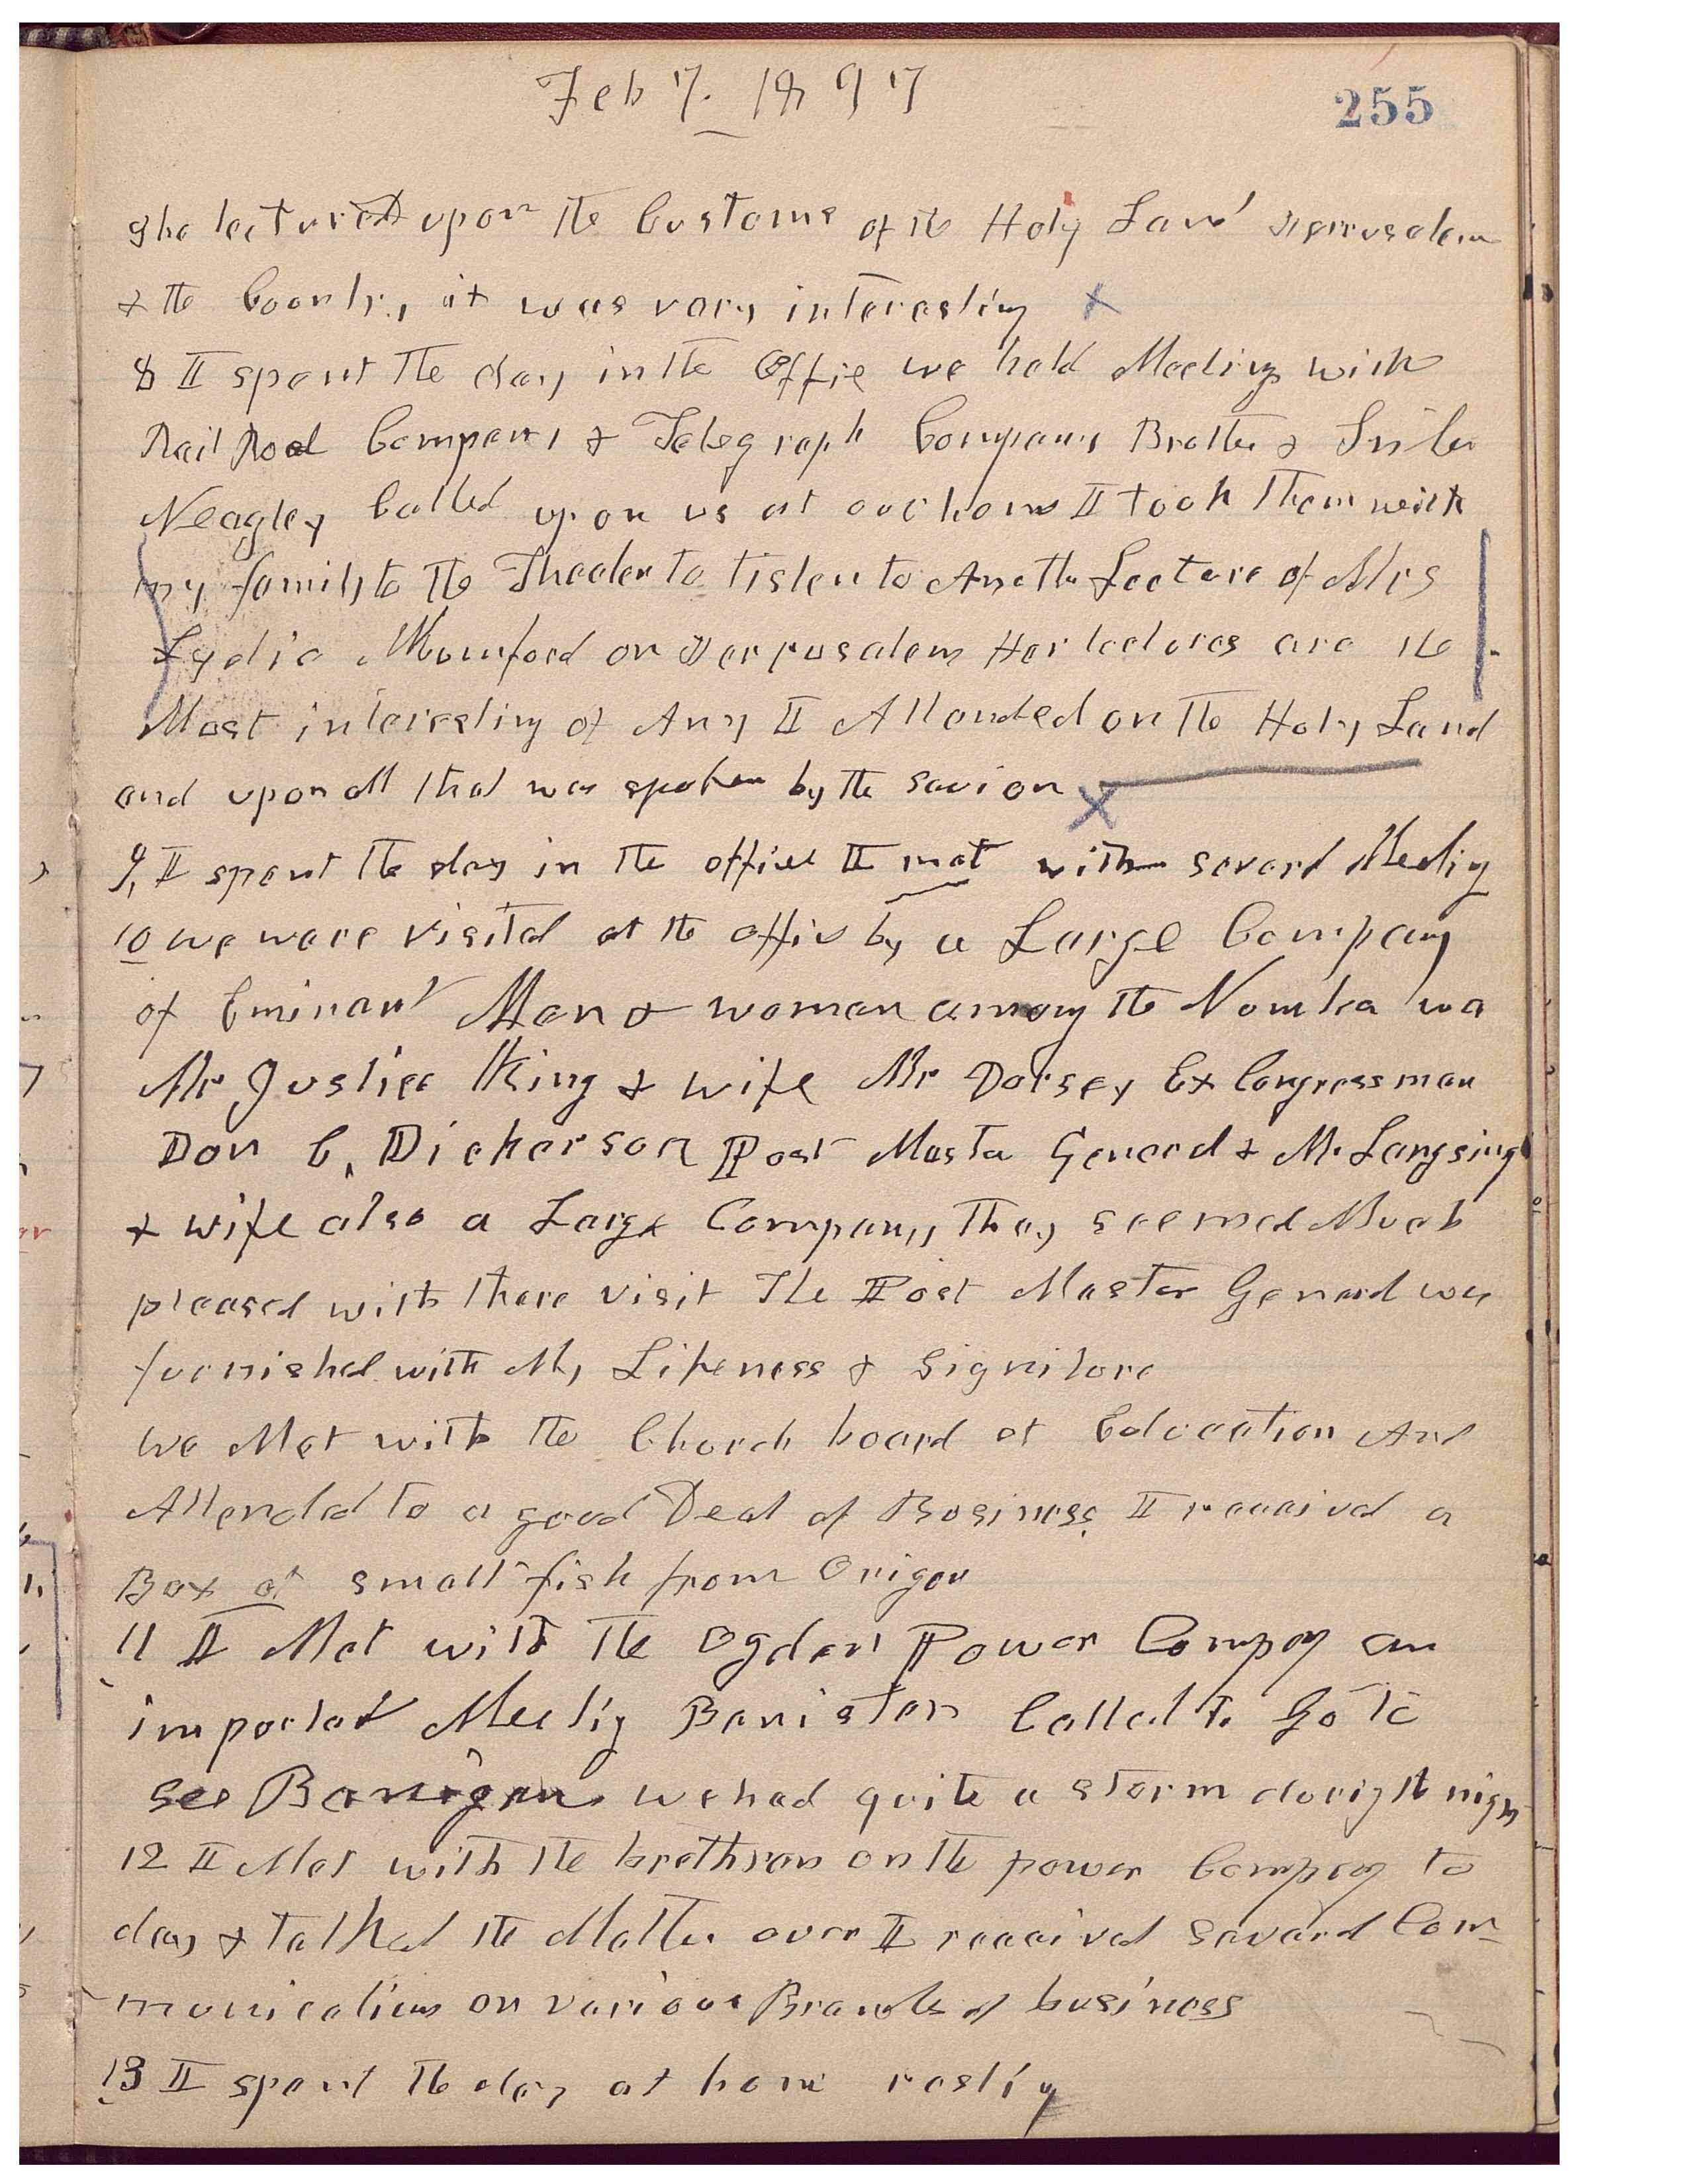 Feb 7. 1897
255
She lectured upon the Customs of the Holy Land Jerrusalem
& the Country, it was very interesting X
8 I spent the day in the Offie we held Meeting with
Rail Road Company & Telegraph Company Brother & Sister
Neagley Called upon us at our home I took them with
my family to the Theater to Listen to Another Lecture of Mrs
Lydia Mumford on Jerrusalem Her lectures are the
Most interesting of Any I Attended on the Holy Land
and upon all that was spoken by the Savior X
9, I spent the day in the office I met with severl Meeting
10 we were visited at the office by a Large Company
of Eminant Men & women among the Number was
Mr Justice King & wife Mr Dorsey Ex Congressman
Don C. Dickerson Post Master General & Mr Langsing
& wife also a Large Company, They seemed Much
pleased with there visit The Post Master General was
furnished with My Likeness & Signiture
We Met with the Church board of Education And
Attended to a good Deal of Business I received a
Box of small fish from Origon
11 I Met with the Ogden Power Compay an
importat Meetig Banister Called to Go to
see Banigan we had quite a storm durig the night
12 I Met with the brethren on the power Compay to
day & talked the Matter over I received severd Com-
munications on various Branches of business
13 I spent the day at home restig